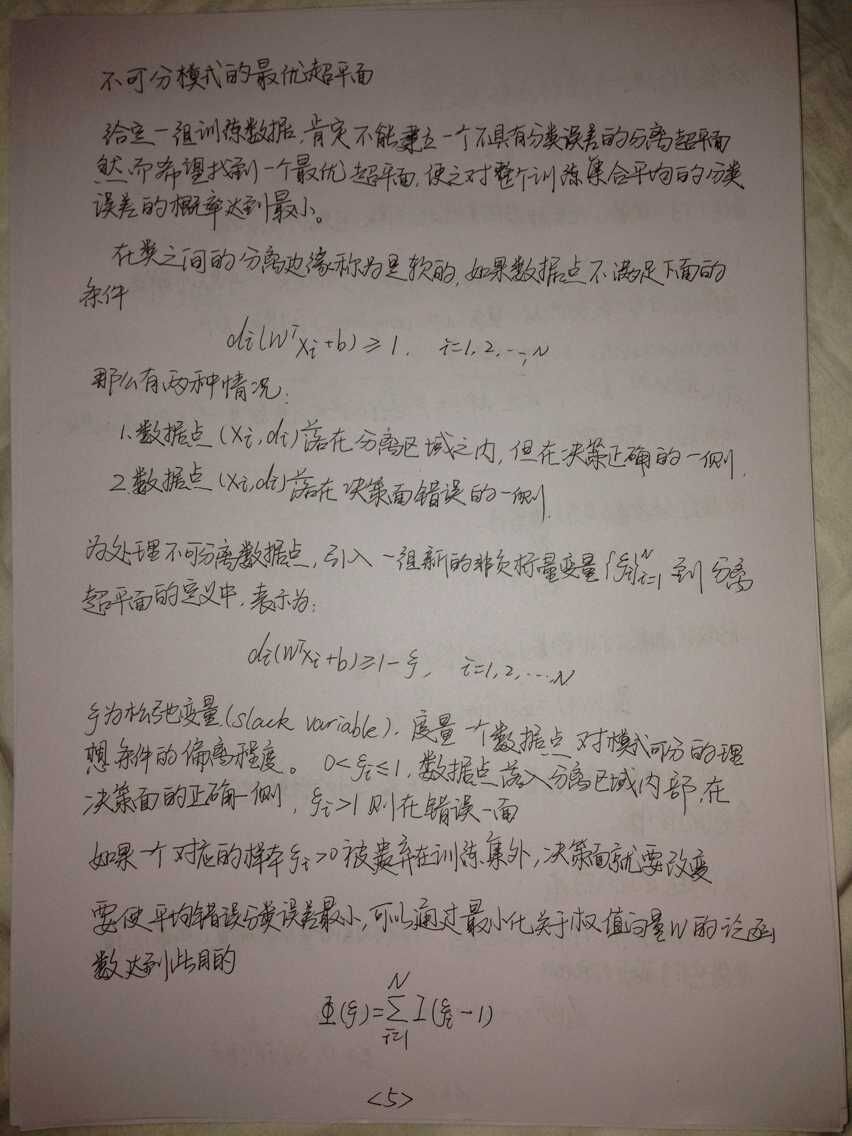 不可分模式的最优超平面
给定一组训练数据,肯定不能建立一个不具有分类误差的分离超平面
然而希望找到一个最优超平面,使之对整个训练集合平均的分类
误差的概率达到最小。
在类之间的分离边缘称为是软的,如果数据点不满足下面的
条件
di(WᵀXi+b)≥1, i=1,2,…,N
那么有两种情况:
1.数据点(Xi,di)落在分离区域之内,但在决策正确的一侧.
2.数据点(Xi,di)落在决策面错误的一侧.
为处理不可分离数据点,引入一组新的非负标量变量{ξi}ᴺi=1到分离
超平面的定义中,表示为:
di(WᵀXi+b)≥1-ξ, i=1,2,…,N
ξ为松弛变量(slack variable),度量一个数据点对模式可分的理
想条件的偏离程度。0<ξi≤1,数据点落入分离区域内部,在
决策面的正确一侧,ξi>1则在错误一面
如果一个对应的样本ξi>0被丢弃在训练集外,决策面就要改变
要使平均错误分类误差最小,可以通过最小化关于权值向量W的泛函
数达到此目的
Φ(ξ)=∑ᴺi=1 I(ξi-1)
<5>